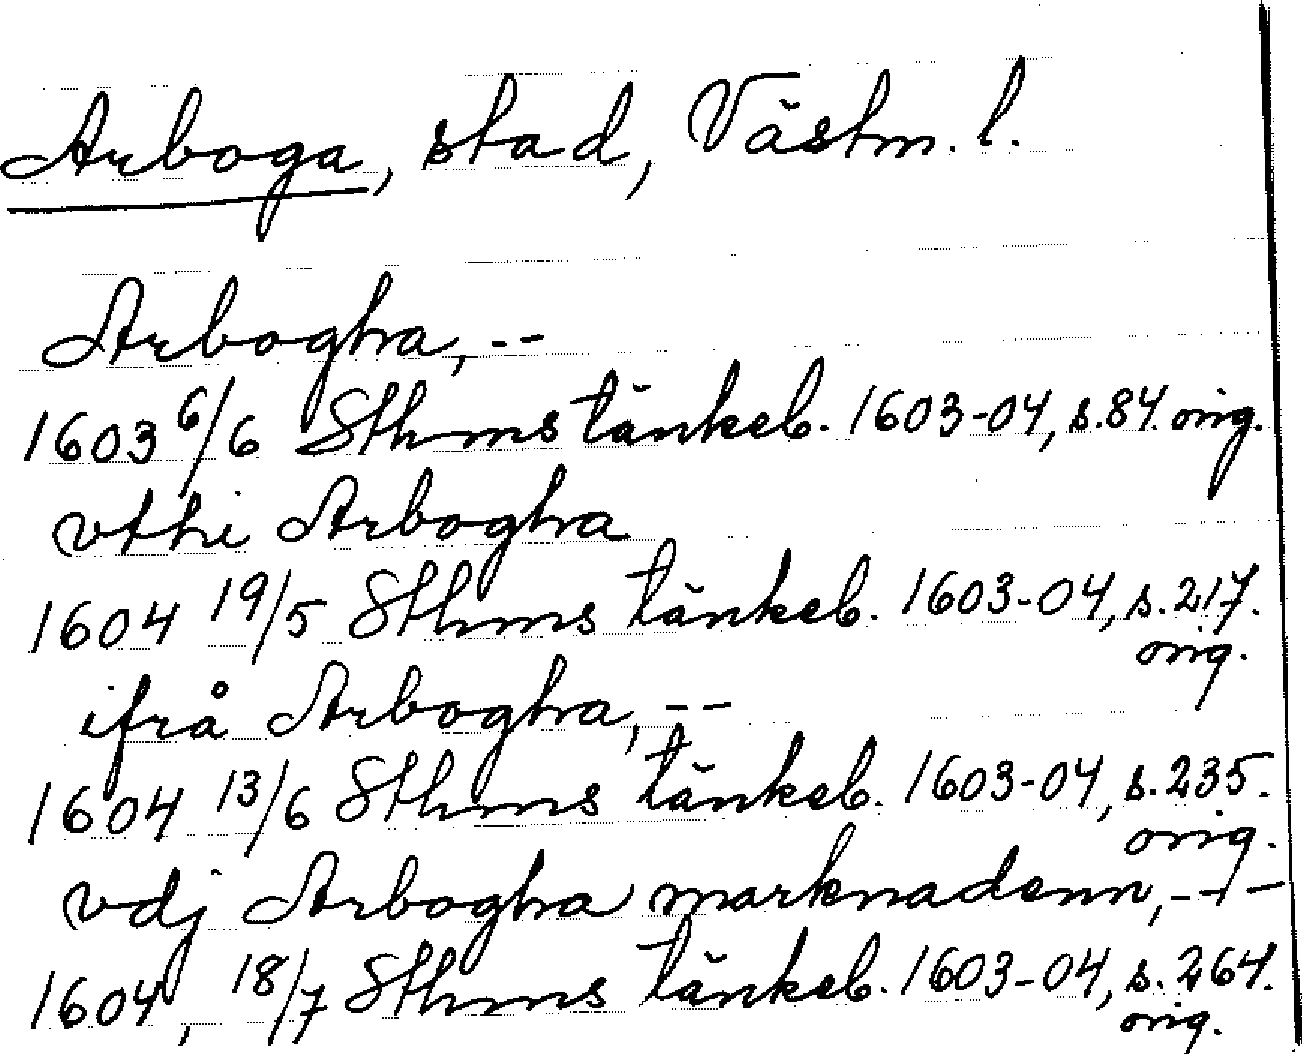 Arboga, stad, Västm. l.
Arbogha, --
1603 6/6 Sthms tänkeb. 1603-04, s.84. orig.
vthi Arbogha
1604 19/5 Sthms tänkeb. 1603-04, s.217.
orig.
ifrå Arbogha, --
1604 13/6 Sthms tänkeb. 1603-04, s.235.
orig.
vdj Arbogha marknadenn, --
1604, 18/7 Sthms tänkeb. 1603-04, s.264.
orig.